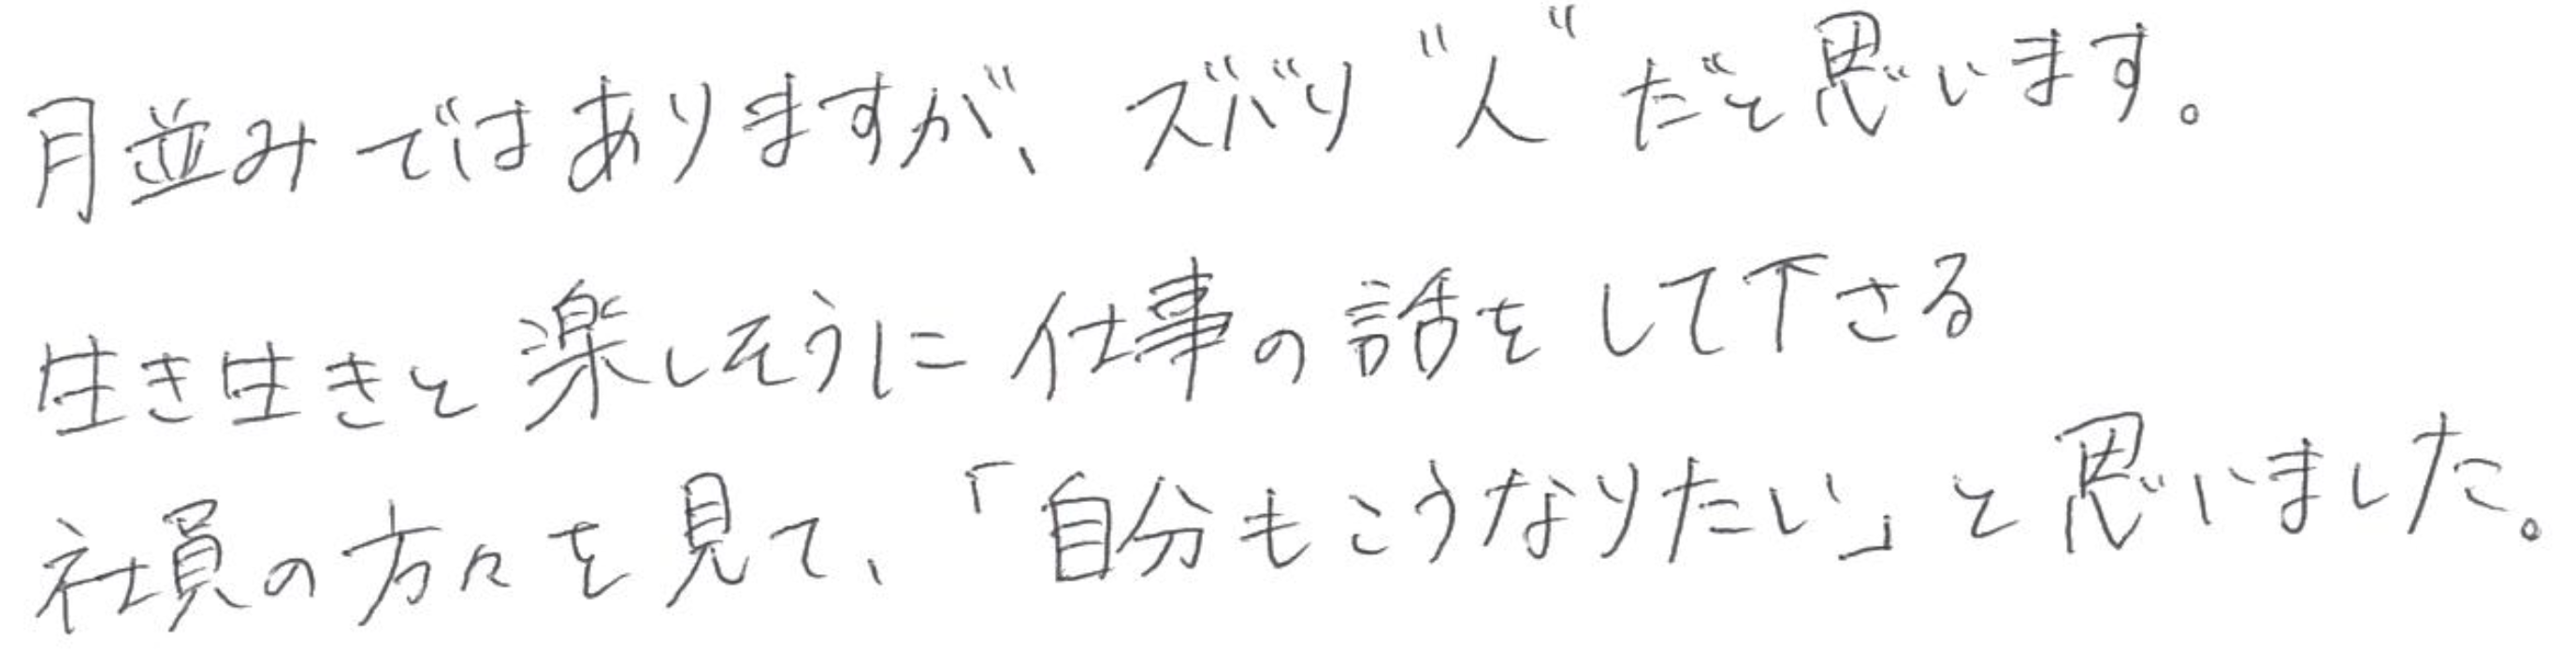 月並みではありますが、ズバリ"人"だと思います。
生き生きと楽しそうに仕事の話をして下さる
社員の方々を見て、「自分もこうなりたい」と思いました。